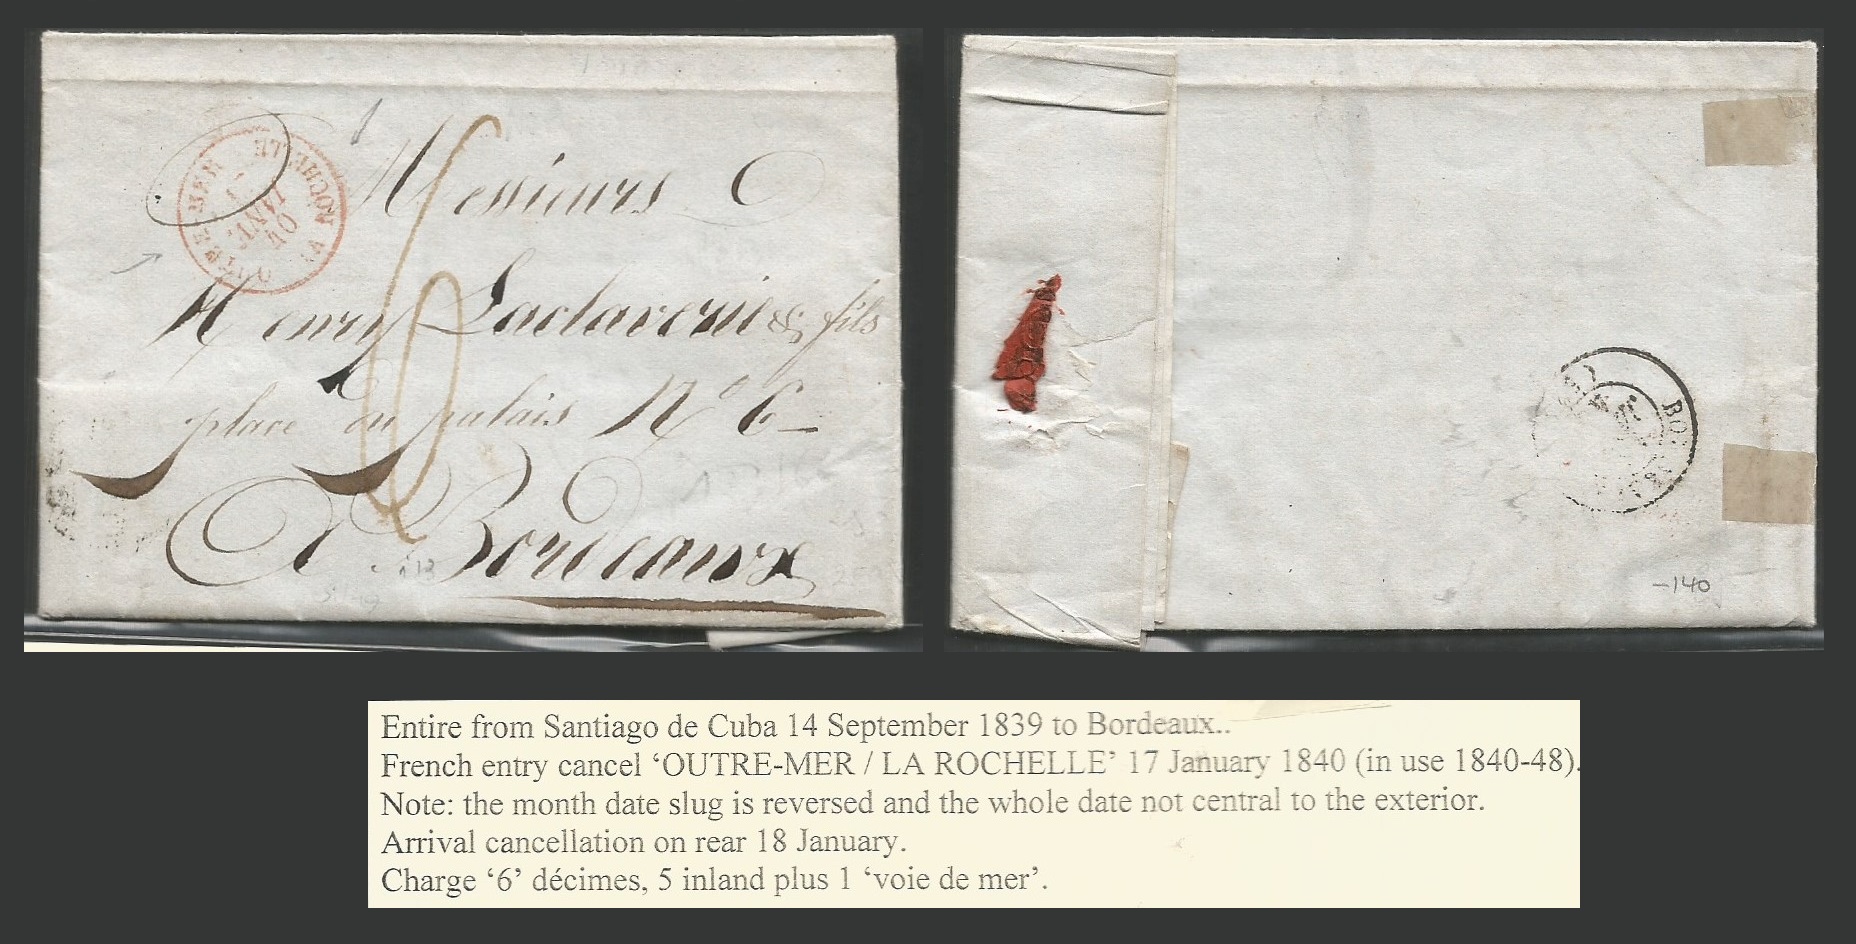 OUTRE-MER
LA ROCHELLE
17
JANV.
40
Messieurs
Henry Laclaverie & fils
place du palais N° 6
A Bordeaux
6
BO
-140
Entire from Santiago de Cuba 14 September 1839 to Bordeaux..
French entry cancel ‘OUTRE-MER / LA ROCHELLE’ 17 January 1840 (in use 1840-48).
Note: the month date slug is reversed and the whole date not central to the exterior.
Arrival cancellation on rear 18 January.
Charge ‘6’ décimes, 5 inland plus 1 ‘voie de mer’.